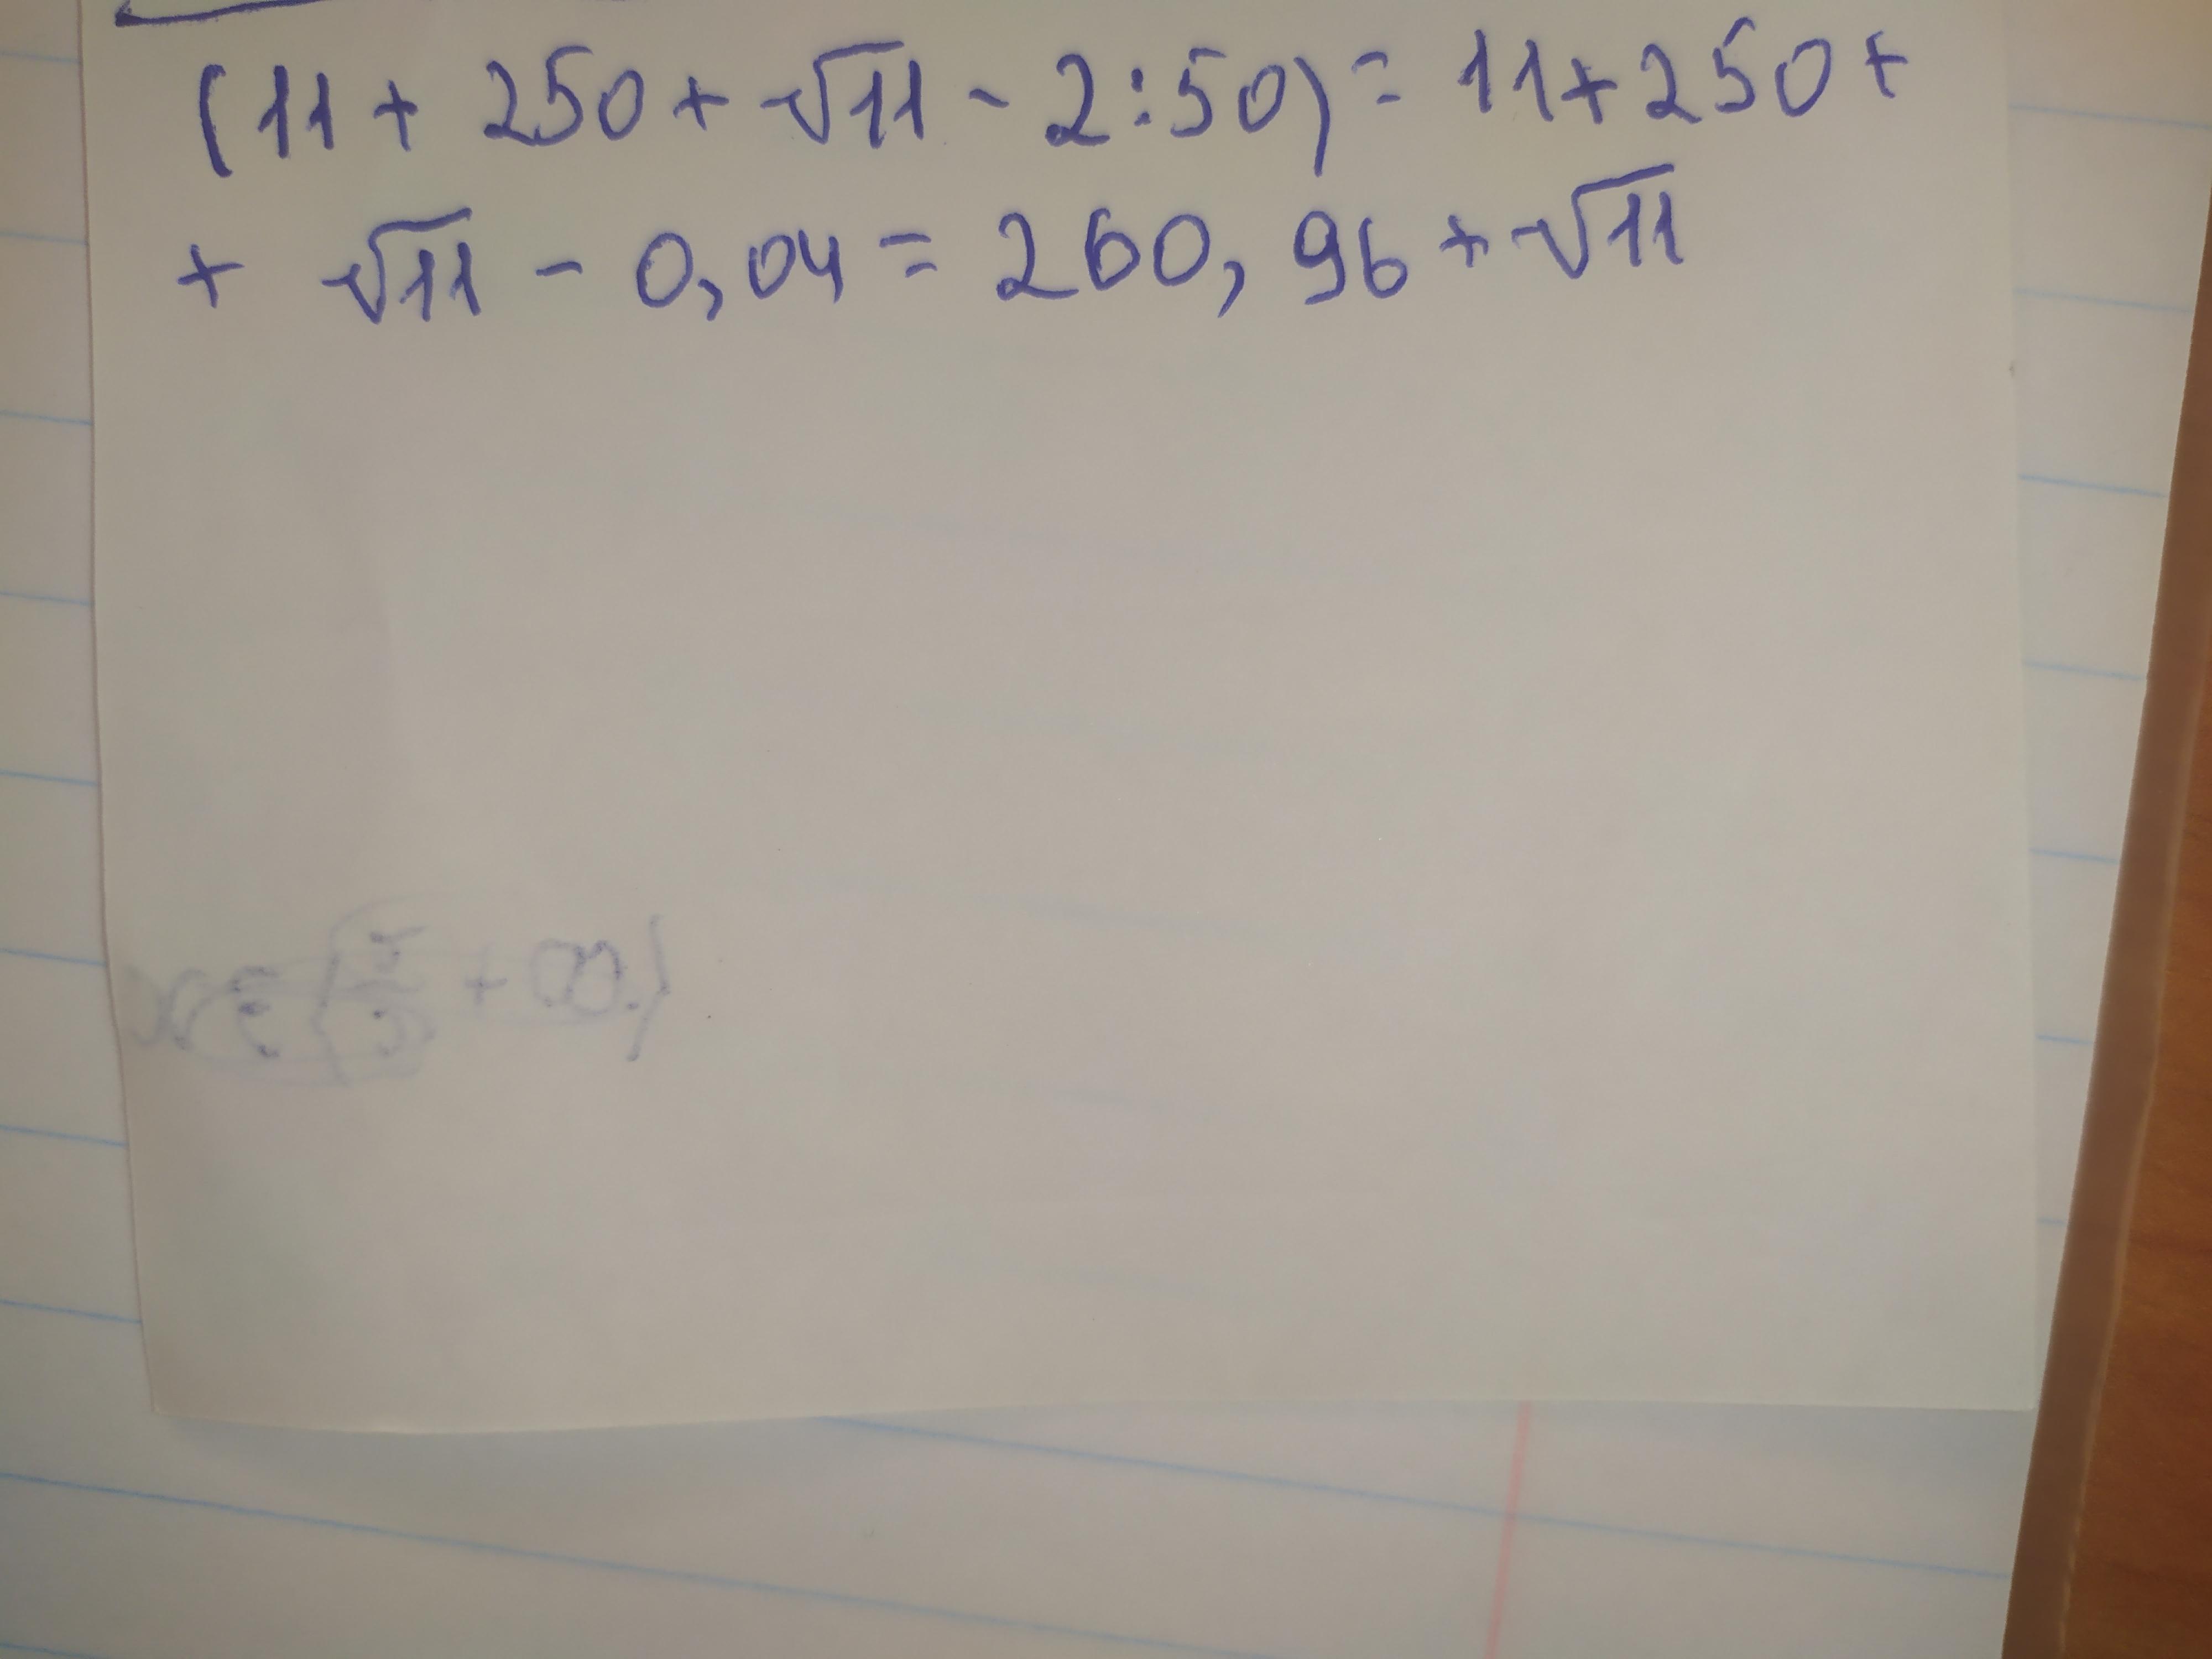 (11 + 250 + √11 - 2:50) = 11+250+
+ √11 - 0,04 = 260,96 + √11